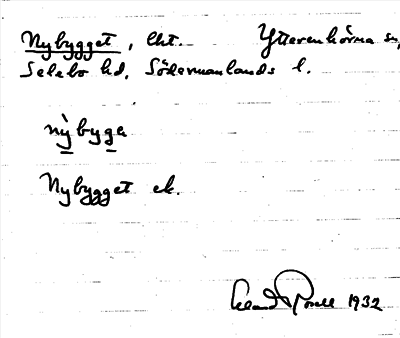 Nybygget, lht. Ytterenhörna sn,
Selebo hd, Södermanlands l.
nỳbyge
Nybygget ek.
1932